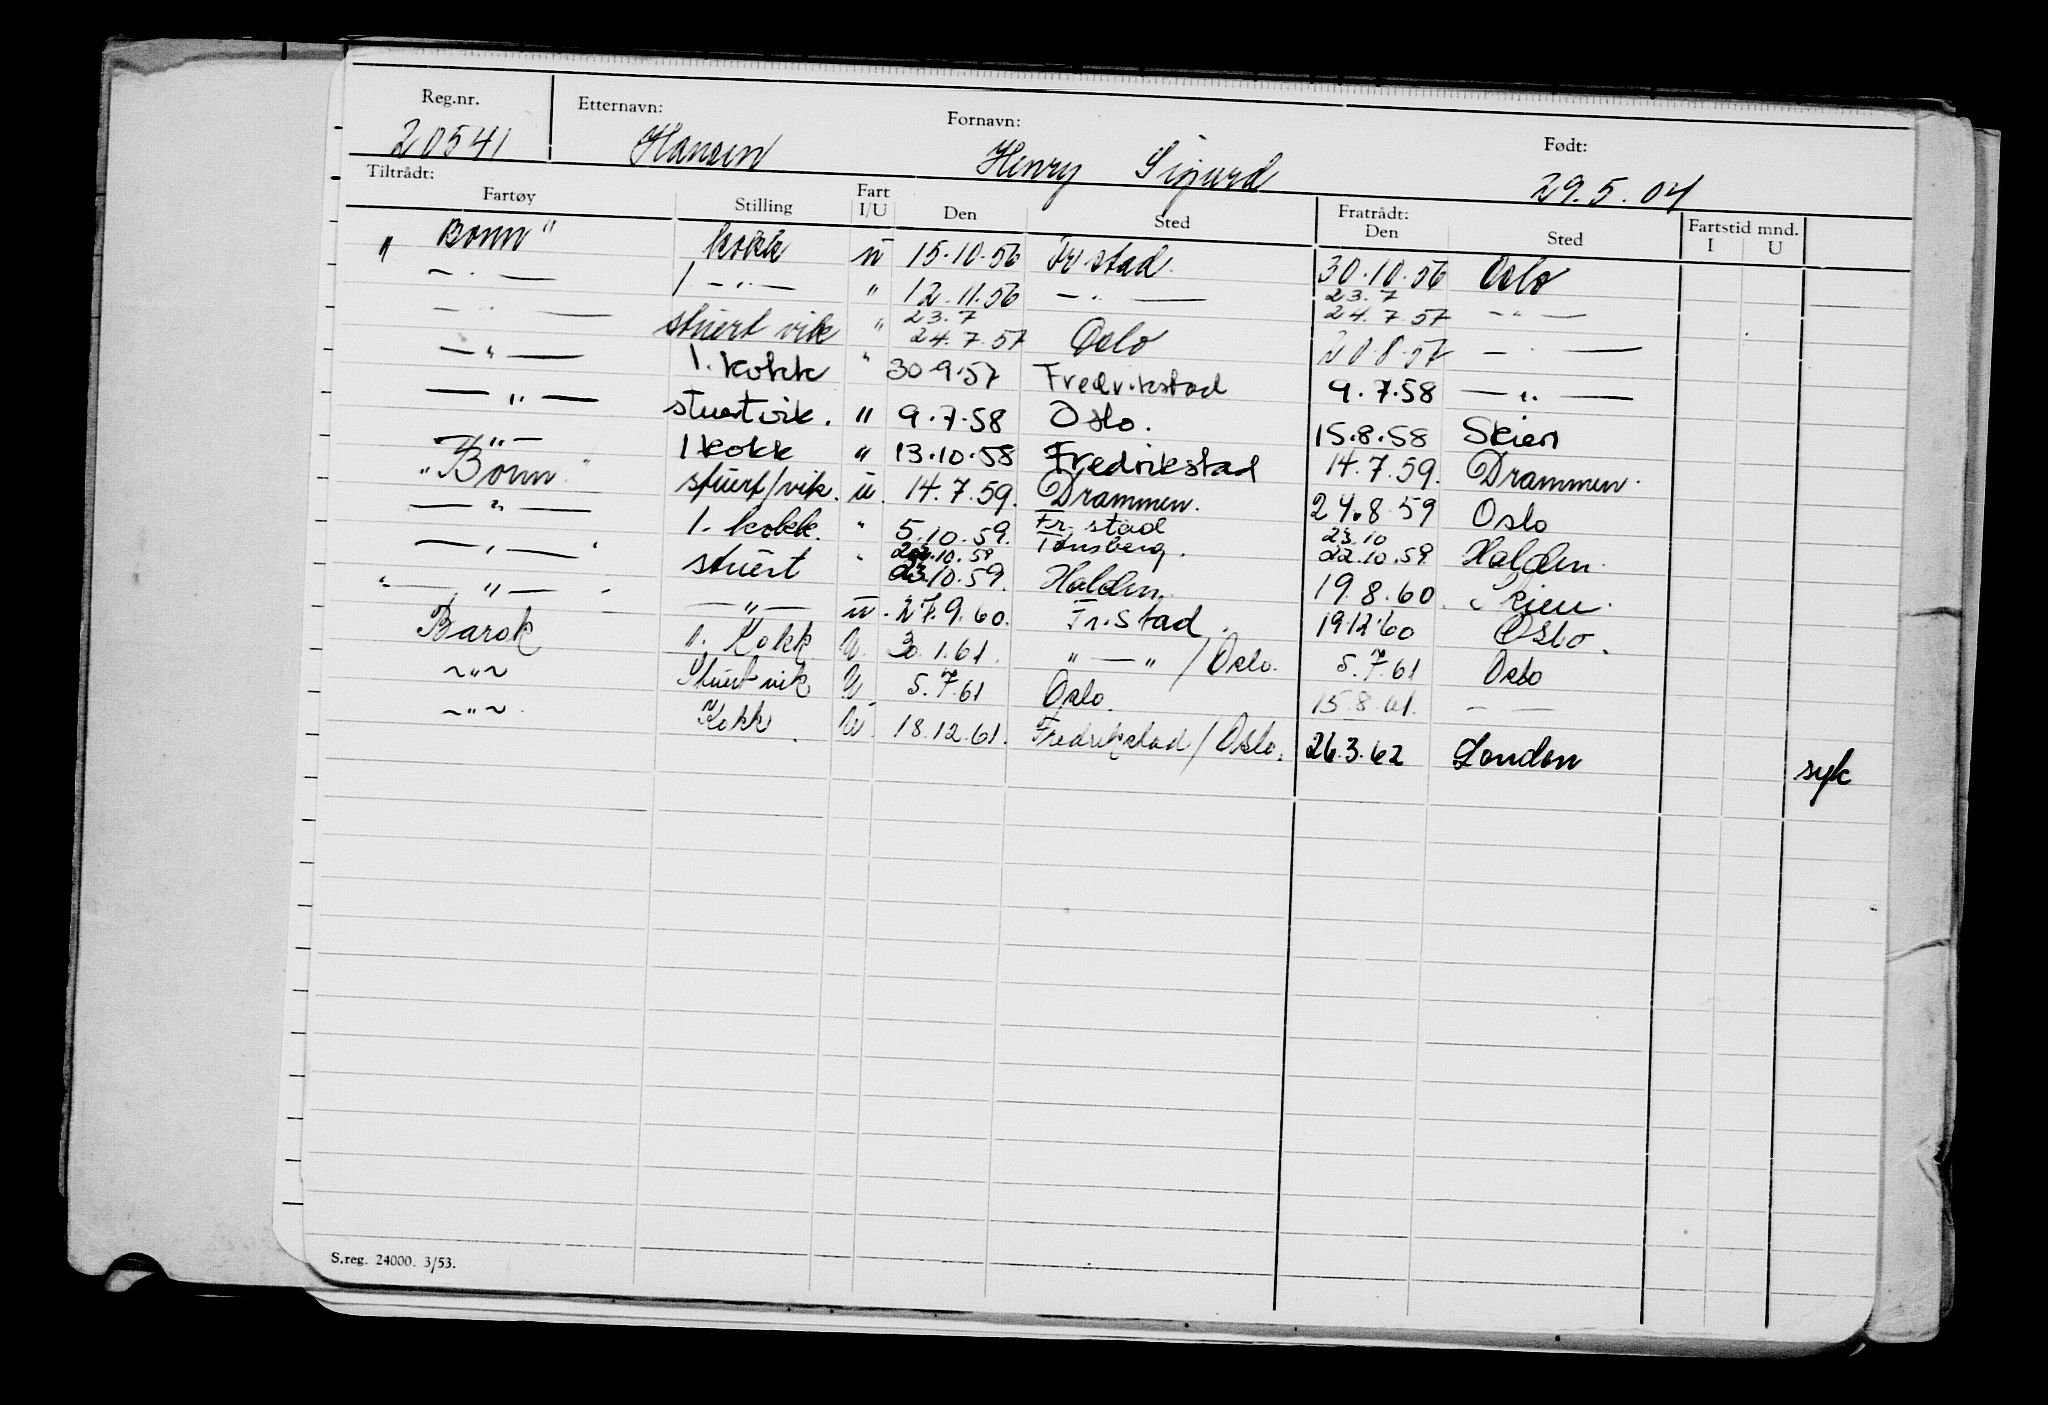 Reg.nr. Etternavn: Fornavn: Født:
20541 Hansen Henry Sigurd 29.5.04
Tiltrådt: Fratrådt: Fartstid mnd.
Fartøy Stilling Fart I/U Den Sted Den Sted I U
" Bonn " kokk u 15.10.56 Fr.stad. 30.10.56 Oslo
— " — 1 — " — " 12.11.56 — " — 23.7 24.7.57 — " —
— " — stuert vik " 23.7 24.7.57 Oslo 20.8.57 — " —
— " — 1. kokk " 30.9.57 Fredrikstad 9.7.58 — " —
— " — stuert vik. " 9.7.58 Oslo. 15.8.58 Skien
— " — 1 kokk " 13.10.58 Fredrikstad 14.7.59. Drammen.
" Bonn " stuert/vik. u. 14.7.59. Drammen. 24.8.59 Oslo
— " — 1. kokk. " 5.10.59. Fr. stad 23.10 22.10.59 Halden.
— " — stuert " 22.10.59 23.10.59. Tønsberg. Halden. 19.8.60. Skien.
" — " — — " — u. 27.9.60. Fr.Stad. 19.12.60 Oslo.
Barok 1. Kokk U. 30.1.61. " — " / Oslo. 5.7.61 Oslo
~ " ~ Stuert vik U 5.7.61 Oslo. 15.8.61. — —
~ " ~ Kokk. U. 18.12.61. Fredrikstad / Oslo. 26.3.62 London syk
S.reg. 24000. 3/53.